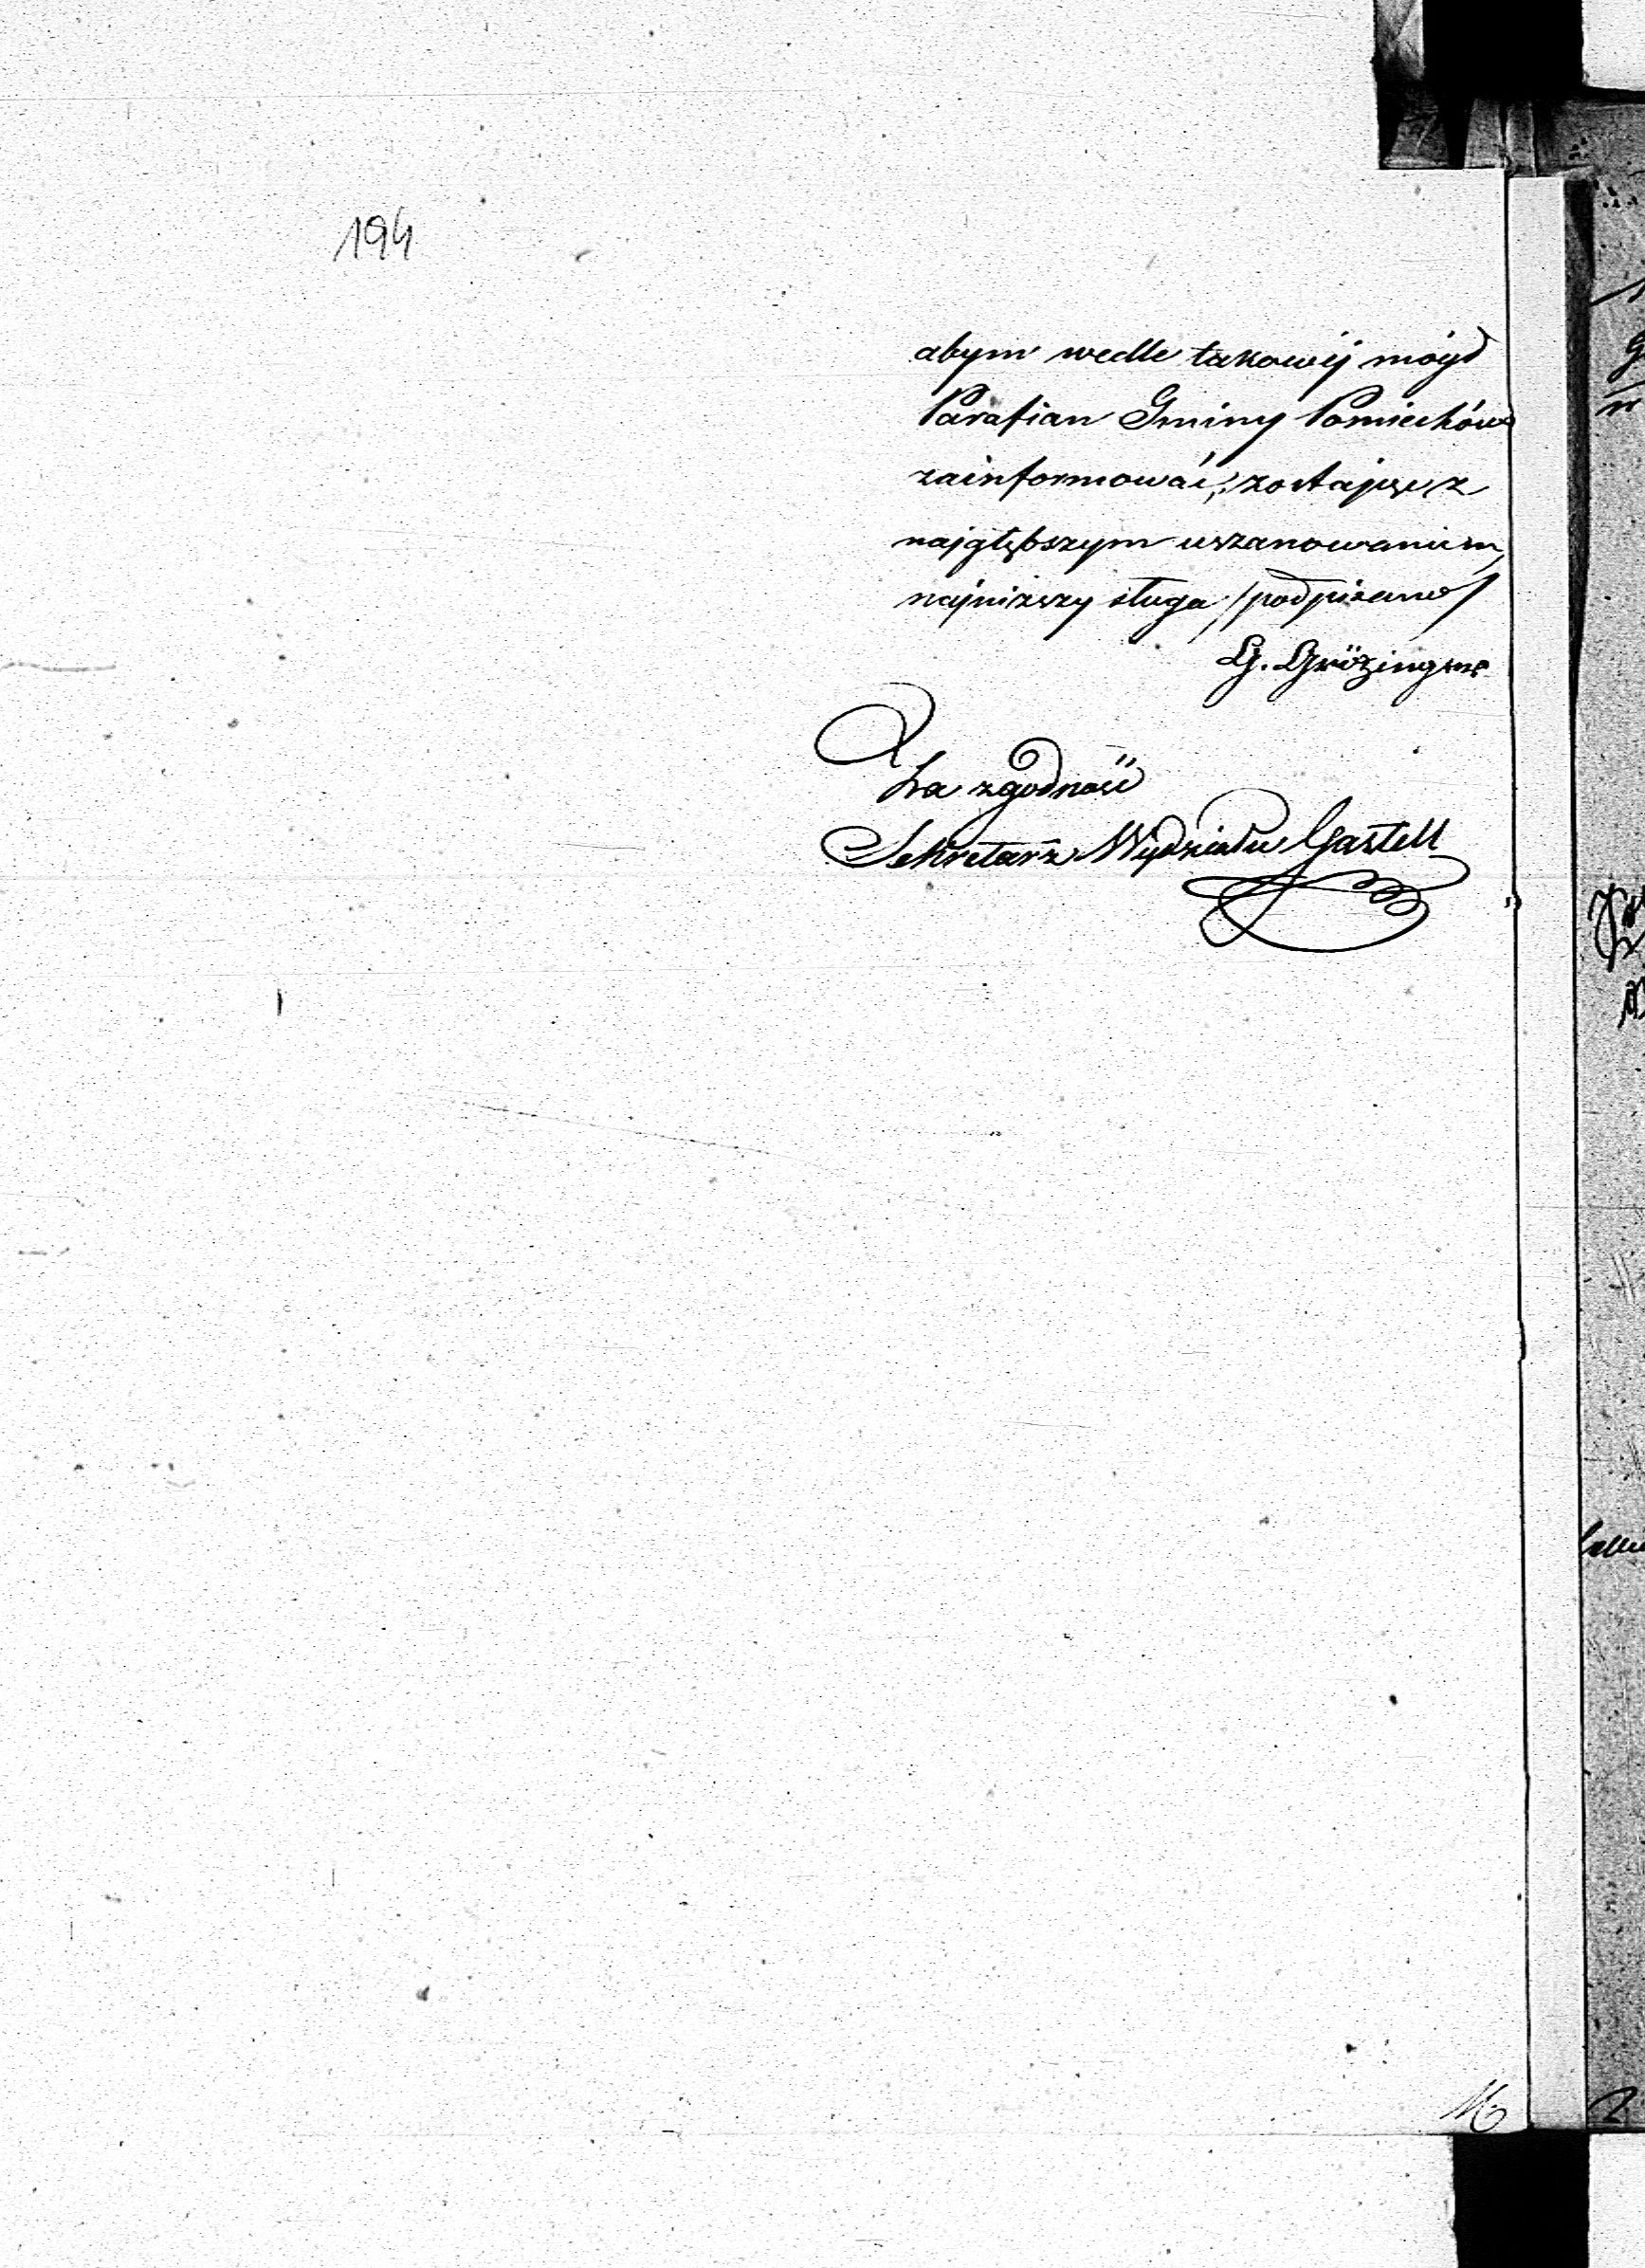 194
abym wedle takowéj mógł
Parafian Gminy Pomiechów
zainformować, zostając z
najgłębszym uszanowaniem,
najniższy sługa /podpisano/
G. Grözinger
Za zgodność
Sekretarz Wydziału Gastell